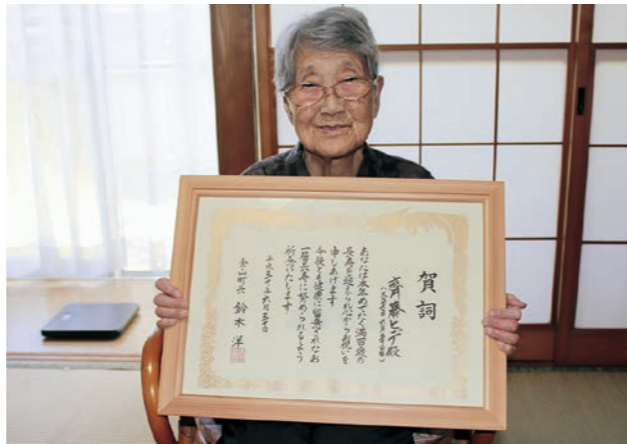 賀詞
齊藤ヒデ殿
あなたは本年めでたく満百歳の
長寿を迎えられ心からお祝いを
申しあげます
今後とも健康に留意されなお
一層長寿に努められるよう
祈念いたします
金山町長 鈴木洋